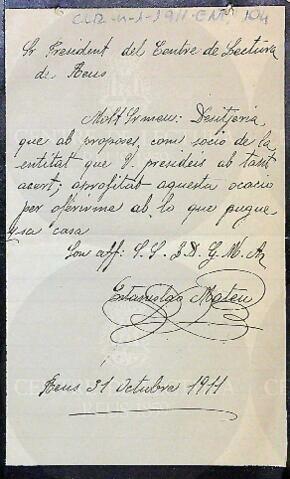 CLR-4-1-1911-ENT 104
Sr President del Centre de Lectura
de Reus
Molt Sr meu: Desitjaria
que ab proposes, com socio de la
entitat que V. presideis ab tant
acert; aprofitat aquesta ocacio
per oferirme ab lo que pugue
y sa casa
Son aff: S. S. Q. D. G. M. A.
Estanislao Mateu
Reus 31 Octubra 1911